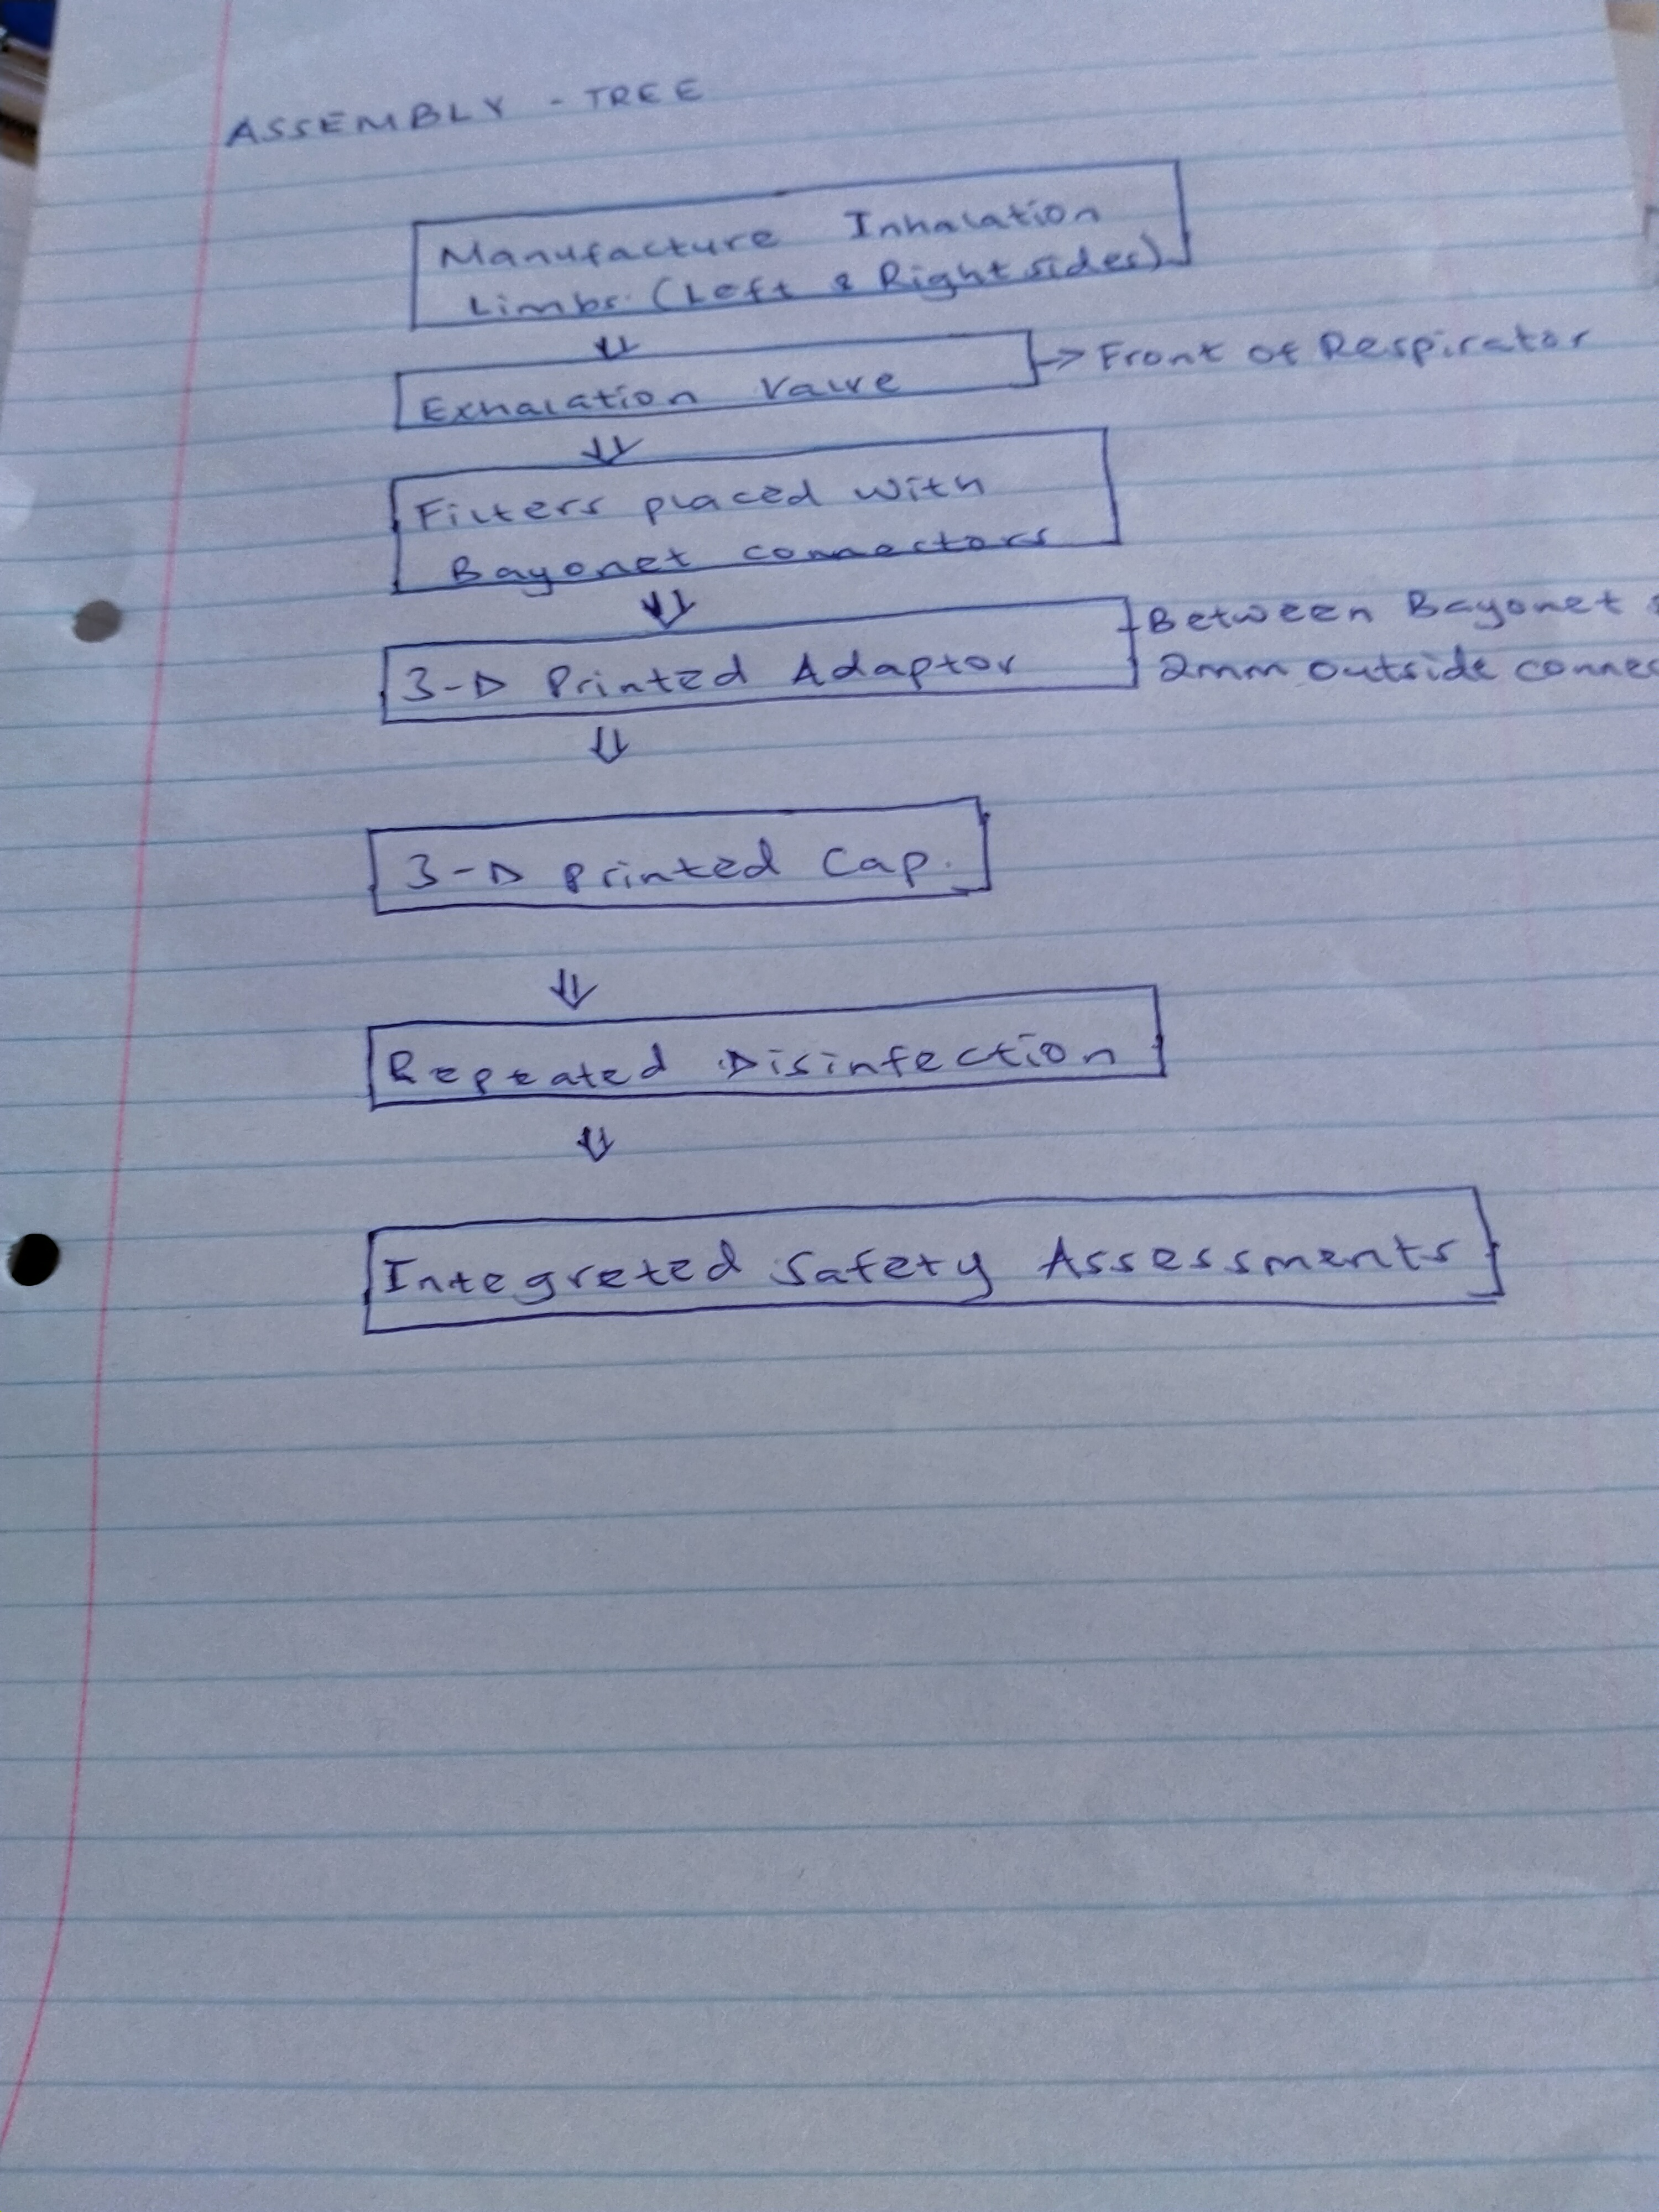 ASSEMBLY - TREE
Manufacture Inhalation
Limbs. (Left & Right sides)
Exhalation Valve
→ Front of Respirator
Filters placed with
Bayonet connectors
3-D Printed Adaptor
Between Bayonet
2mm outside
3-D Printed Cap.
Repeated Disinfection
Integreted Safety Assessments